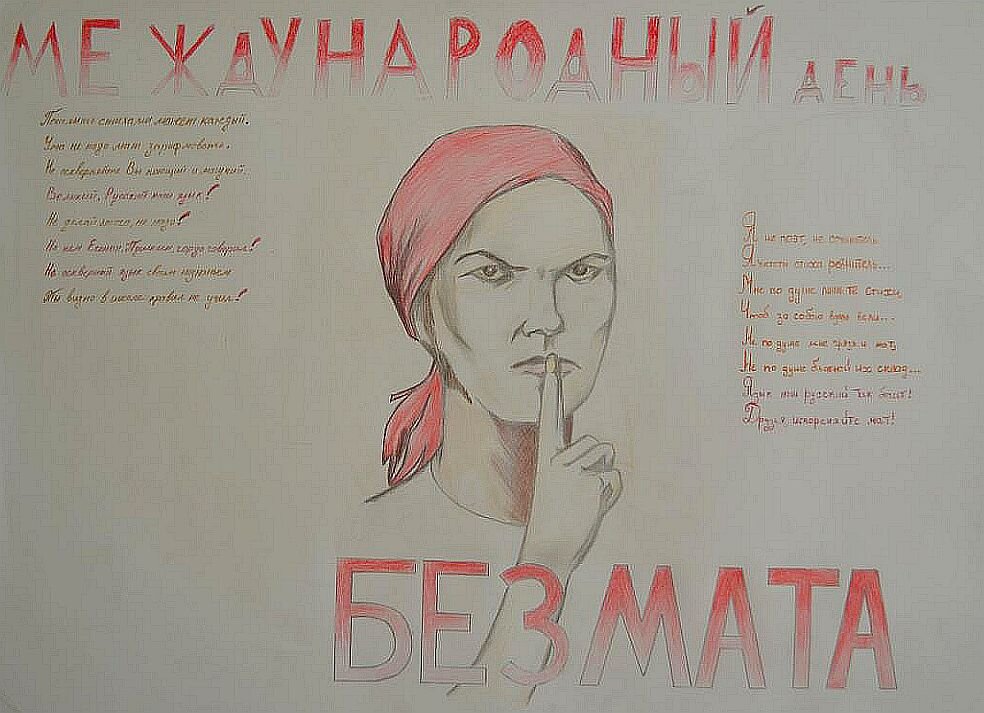 МЕЖДУНАРОДНЫЙ ДЕНЬ
Писать стихами может каждый.
Что не надо мат зарифмовать.
Не оскверняйте Вы могущий и
Великий, Русский наш язык!
Не делай этого, не надо!
На нем Есенин, Пушкин гордо говорил!
Не оскверняй язык своим
Ты видно в школе правил не учил!
Я не поэт, не сочинитель
Я чистоты стиха ревнитель...
Мне по душе поймите стихи,
Чтоб за собою вдаль вели...
Не по душе мне грязь и мат,
Не по душе блатной их склад...
Язык наш русский так богат!
Друзья, искореняйте мат!
БЕЗ МАТА